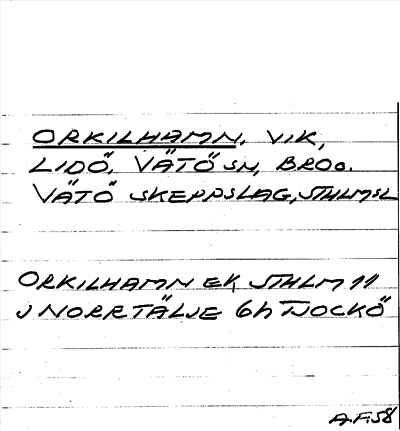 ORKILHAMN. VIK,
LIDÖ. VÄTÖ SN, BRO o.
VÄTÖ SKEPPSLAG, STHLMSL
ORKILHAMN EK, STHLM 11
J NORRTÄLJE 6h TJOCKÖ
A.F.58